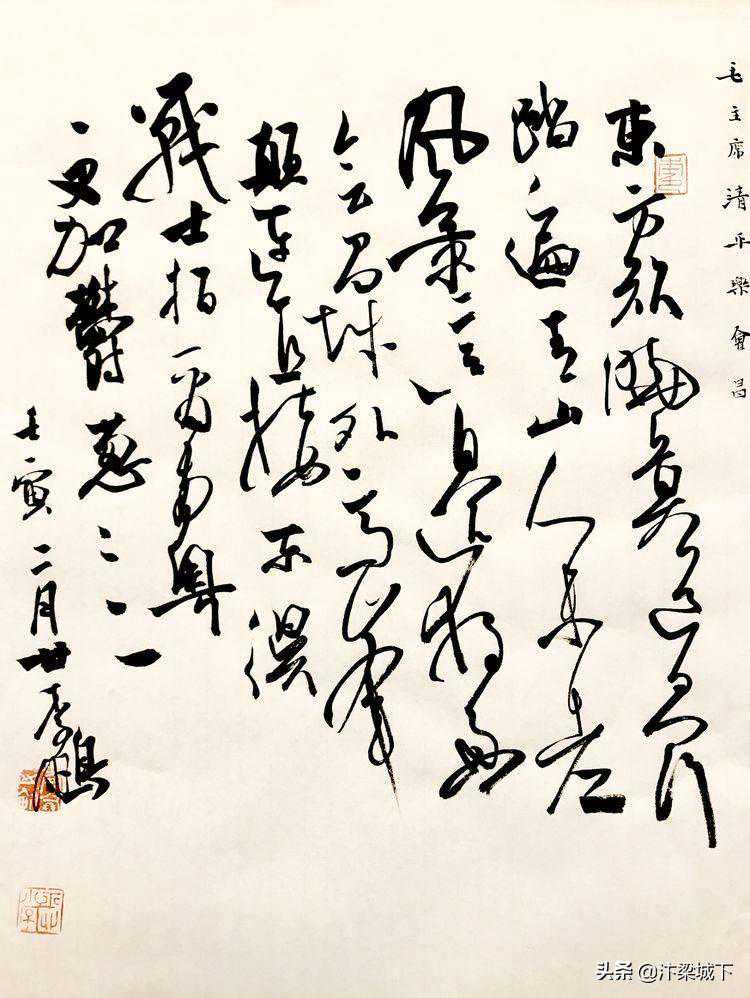 毛主席清平樂會昌
東方欲曉莫道君行
踏遍青山人未老
風景這邊獨好
會昌城外高峰
顛連直接東溟
戰士指看南粵
更加鬱蔥
壬寅二月廿
头条 @汴梁城下